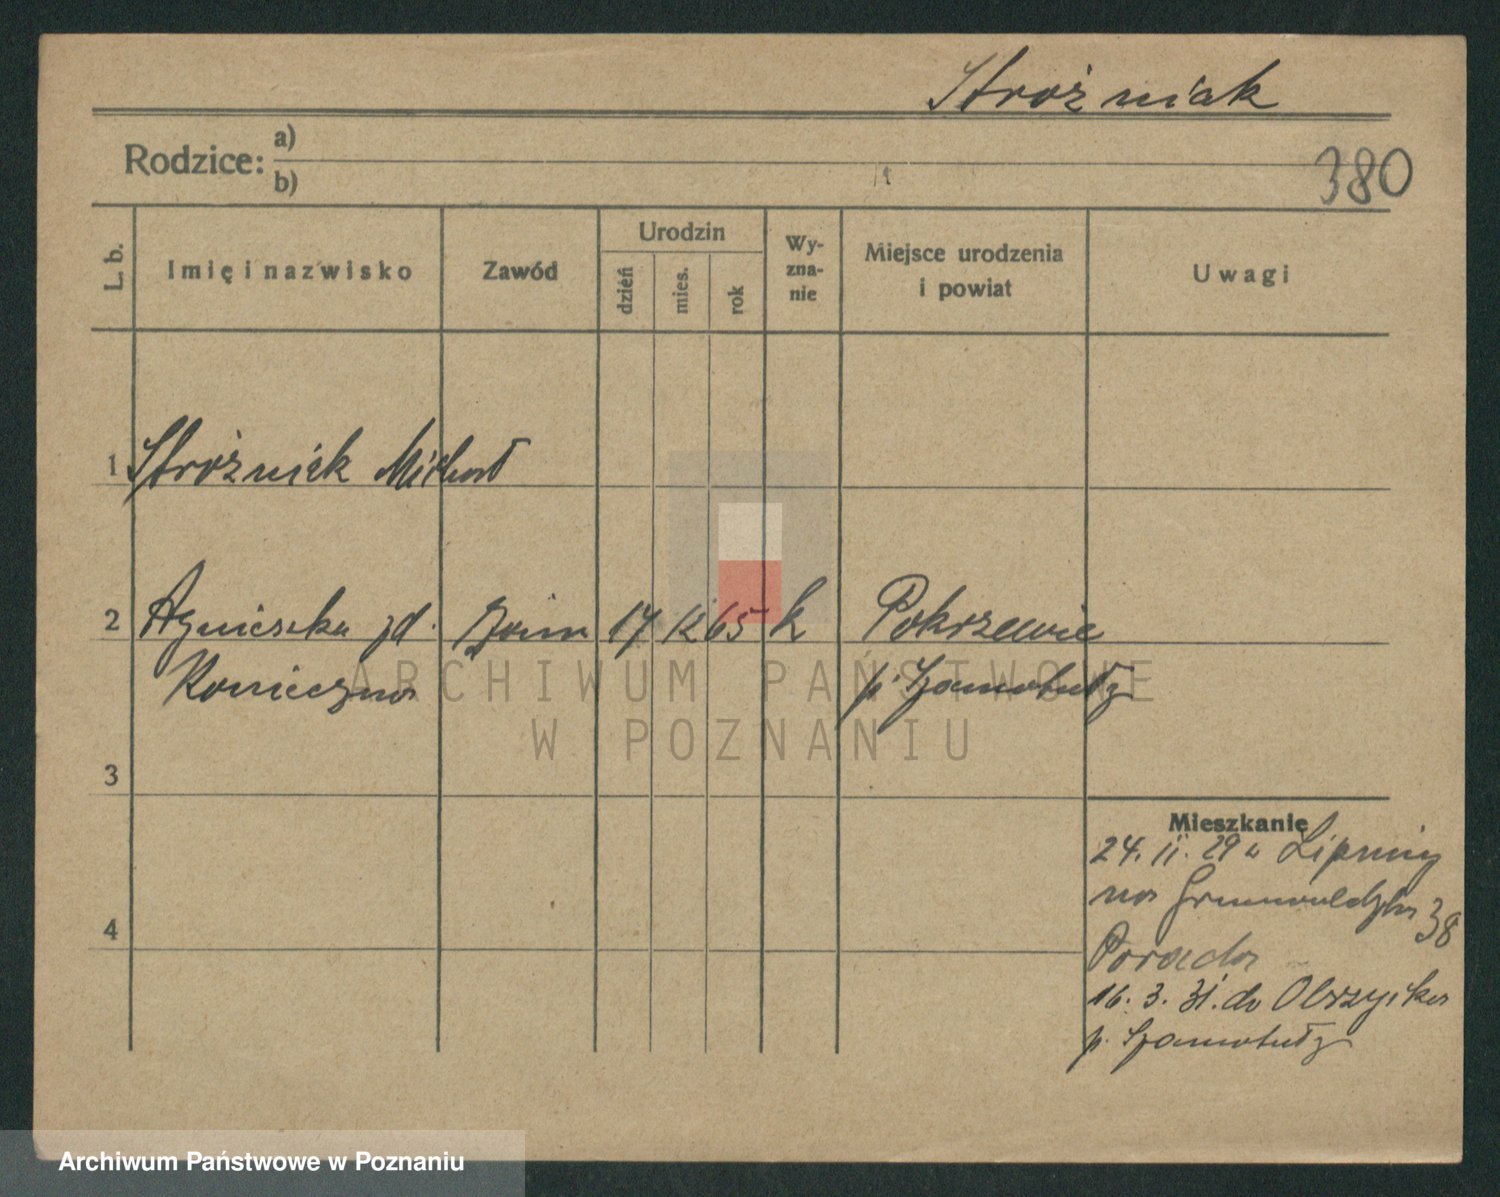 Stróżniak
Rodzice: a)
b)
380
L. b.
Imię i nazwisko
Zawód
Urodzin
dzień
mies.
rok
Wy-
zna-
nie
Miejsce urodzenia
i powiat
Uwagi
1 Stróżniak Michał
2 Agnieszka zd. 17 12 65 k Pokrzewie
Konieczna p. Szamotuły
3
4
Mieszkanie
24. II. 29 z Lipnicy
na Grunwaldzka 38
16. 3. 31. do Obrzycka
p. Szamotuły
ARCHIWUM PAŃSTWOWE
W POZNANIU
Archiwum Państwowe w Poznaniu